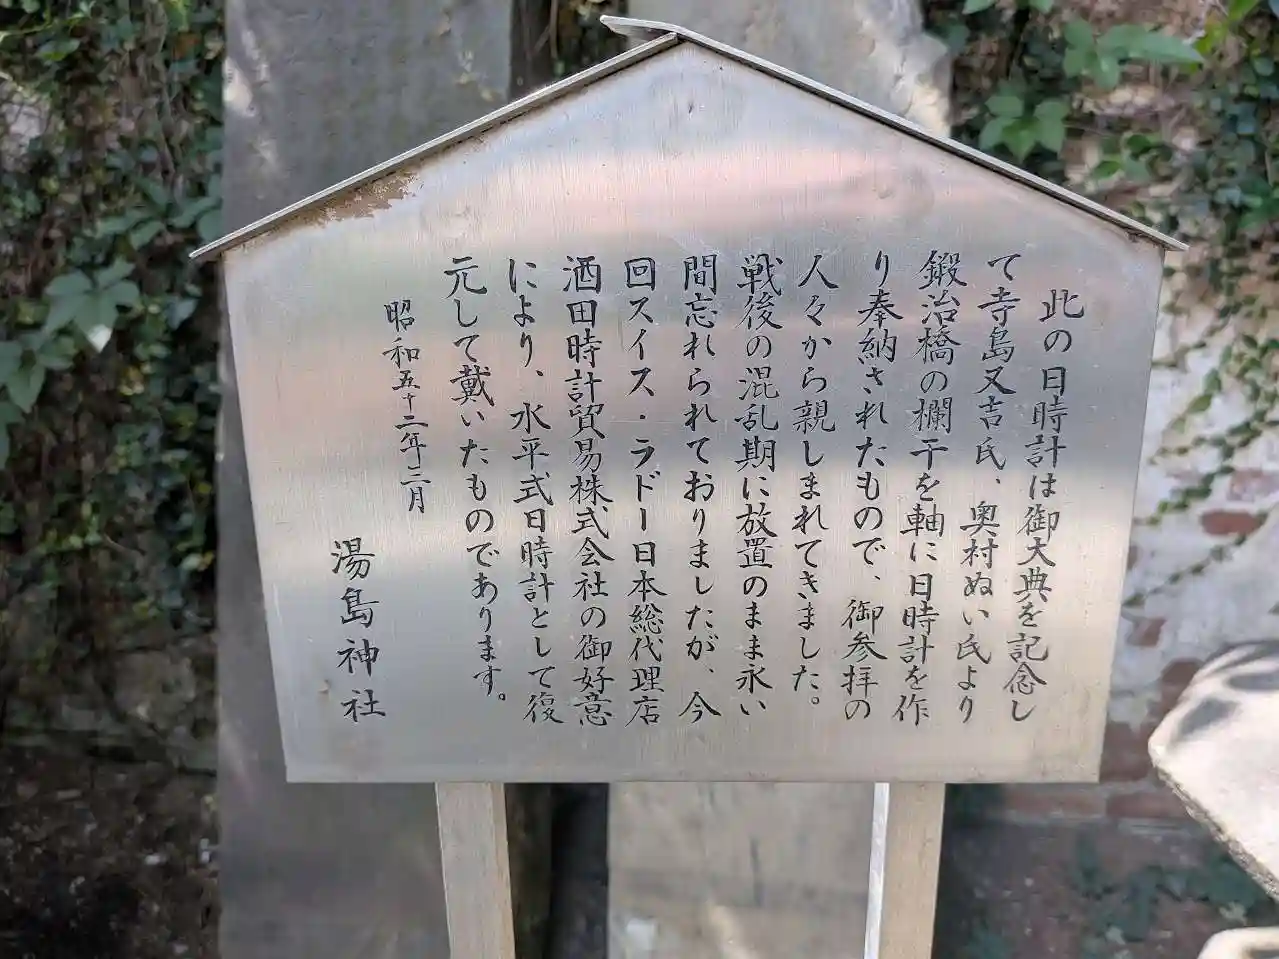 此の日時計は御大典を記念し
て寺島又吉氏、奥村ぬい氏より
鍛冶橋の欄干を軸に日時計を作
り奉納されたもので、御参拝の
人々から親しまれてきました。
戦後の混乱期に放置のまま永い
間忘れられておりましたが、今
回スイス・ラドー日本総代理店
酒田時計貿易株式会社の御好意
により、水平式日時計として復
元して戴いたものであります。
昭和五十二年三月
湯島神社